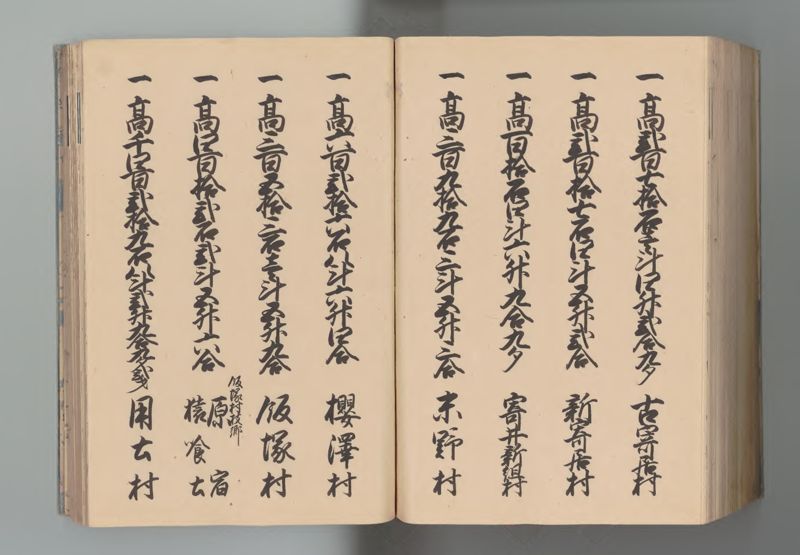 一 高弐百七拾石壱斗四升弐合九夕 古寄居村
一 高弐百拾七石四斗五升弐合 新寄居村
一 高百拾石四斗六升九合九夕 寄井新組村
一 高三百九拾九石三斗五升三合 末野村
一 高六百弐拾六石八斗六升四合 櫻澤村
一 高三百五拾三石壱斗五升九合 飯塚村
一 高四百拾弐石弐斗五升六合 飯塚村枝郷 原宿 猿喰土
一 高千四百弐拾九石八斗弐升九合九夕 用土村